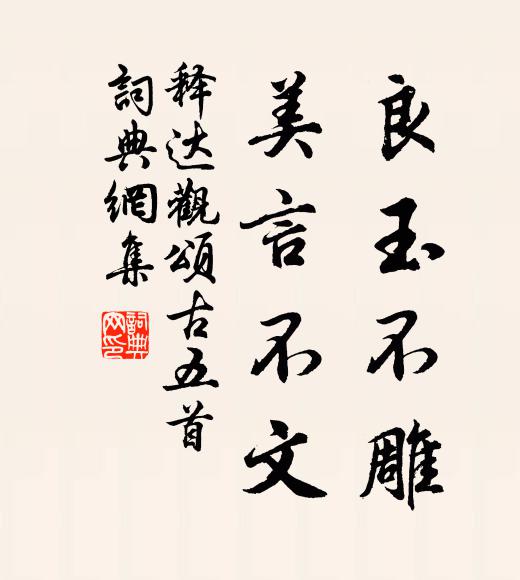 良玉不雕
美言不文
释达觀頌古五首
詞典網集
詞典网印